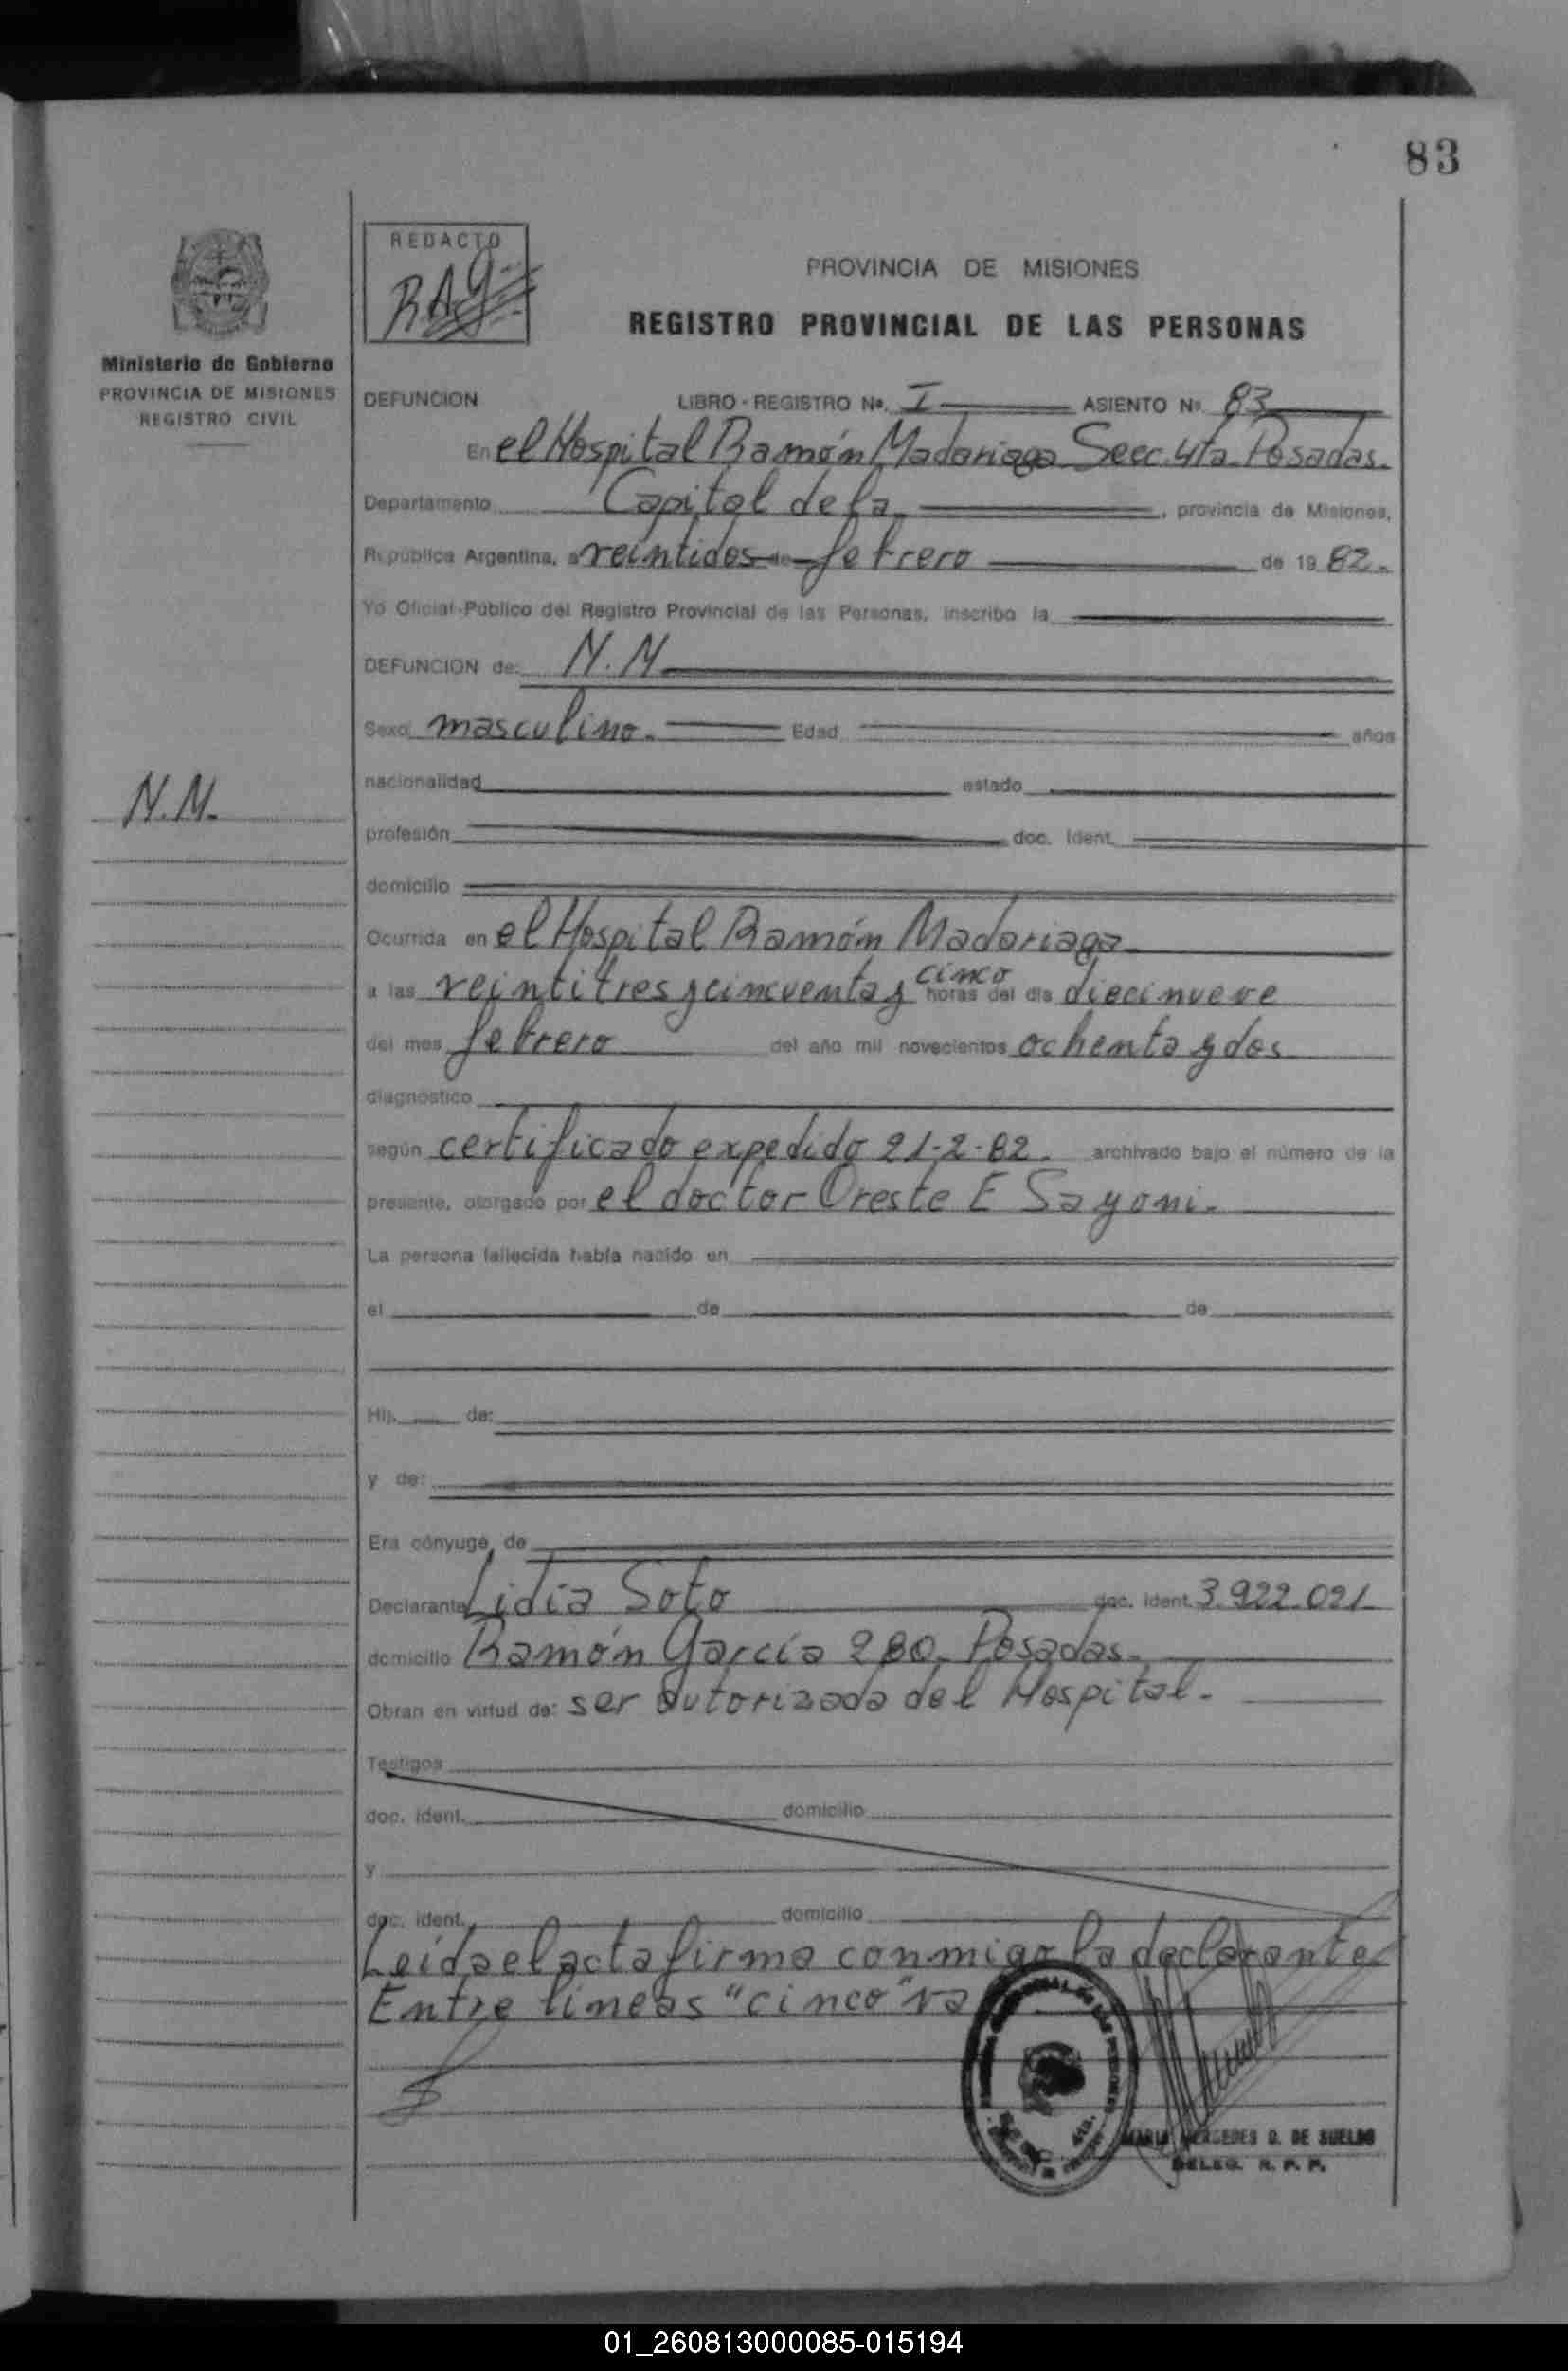 83
REDACTO
RAG
PROVINCIA DE MISIONES
REGISTRO PROVINCIAL DE LAS PERSONAS
Ministerio de Gobierno
PROVINCIA DE MISIONES
REGISTRO CIVIL
DEFUNCION LIBRO - REGISTRO Nº. I ASIENTO Nº. 83
En el Hospital Ramón Madariaga Secc. 4ta. Posadas.
Departamento Capital de la , provincia de Misiones,
República Argentina, a veintidos de febrero de 1982.
Yo Oficial Público del Registro Provincial de las Personas, inscribo la
DEFUNCION de: N.N
Sexo masculino. Edad años
nacionalidad estado
N.N.
profesión doc. ident.
domicilio
Ocurrida en el Hospital Ramón Madariaga
a las veintitres y cincuenta y cinco horas del día diecinueve
del mes febrero del año mil novecientos ochenta y dos
diagnóstico
según certificado expedido 21-2-82. archivado bajo el número de la
presente, otorgado por el doctor Oreste E
La persona fallecida había nacido en
el de de
Hij de:
y de:
Era cónyuge de
Declarante Lidia Soto doc. ident. 3.922.021
domicilio Ramón García 280. Posadas.
Obran en virtud de: ser autorizada del Hospital.
Testigos
doc. ident. domicilio
y
doc. ident. domicilio
Leída el acta firma conmigo la declarante
Entre líneas "cinco" va
MARIA MERCEDES D. DE SUELDO
DELEG. R. P. P.
01_260813000085-015194